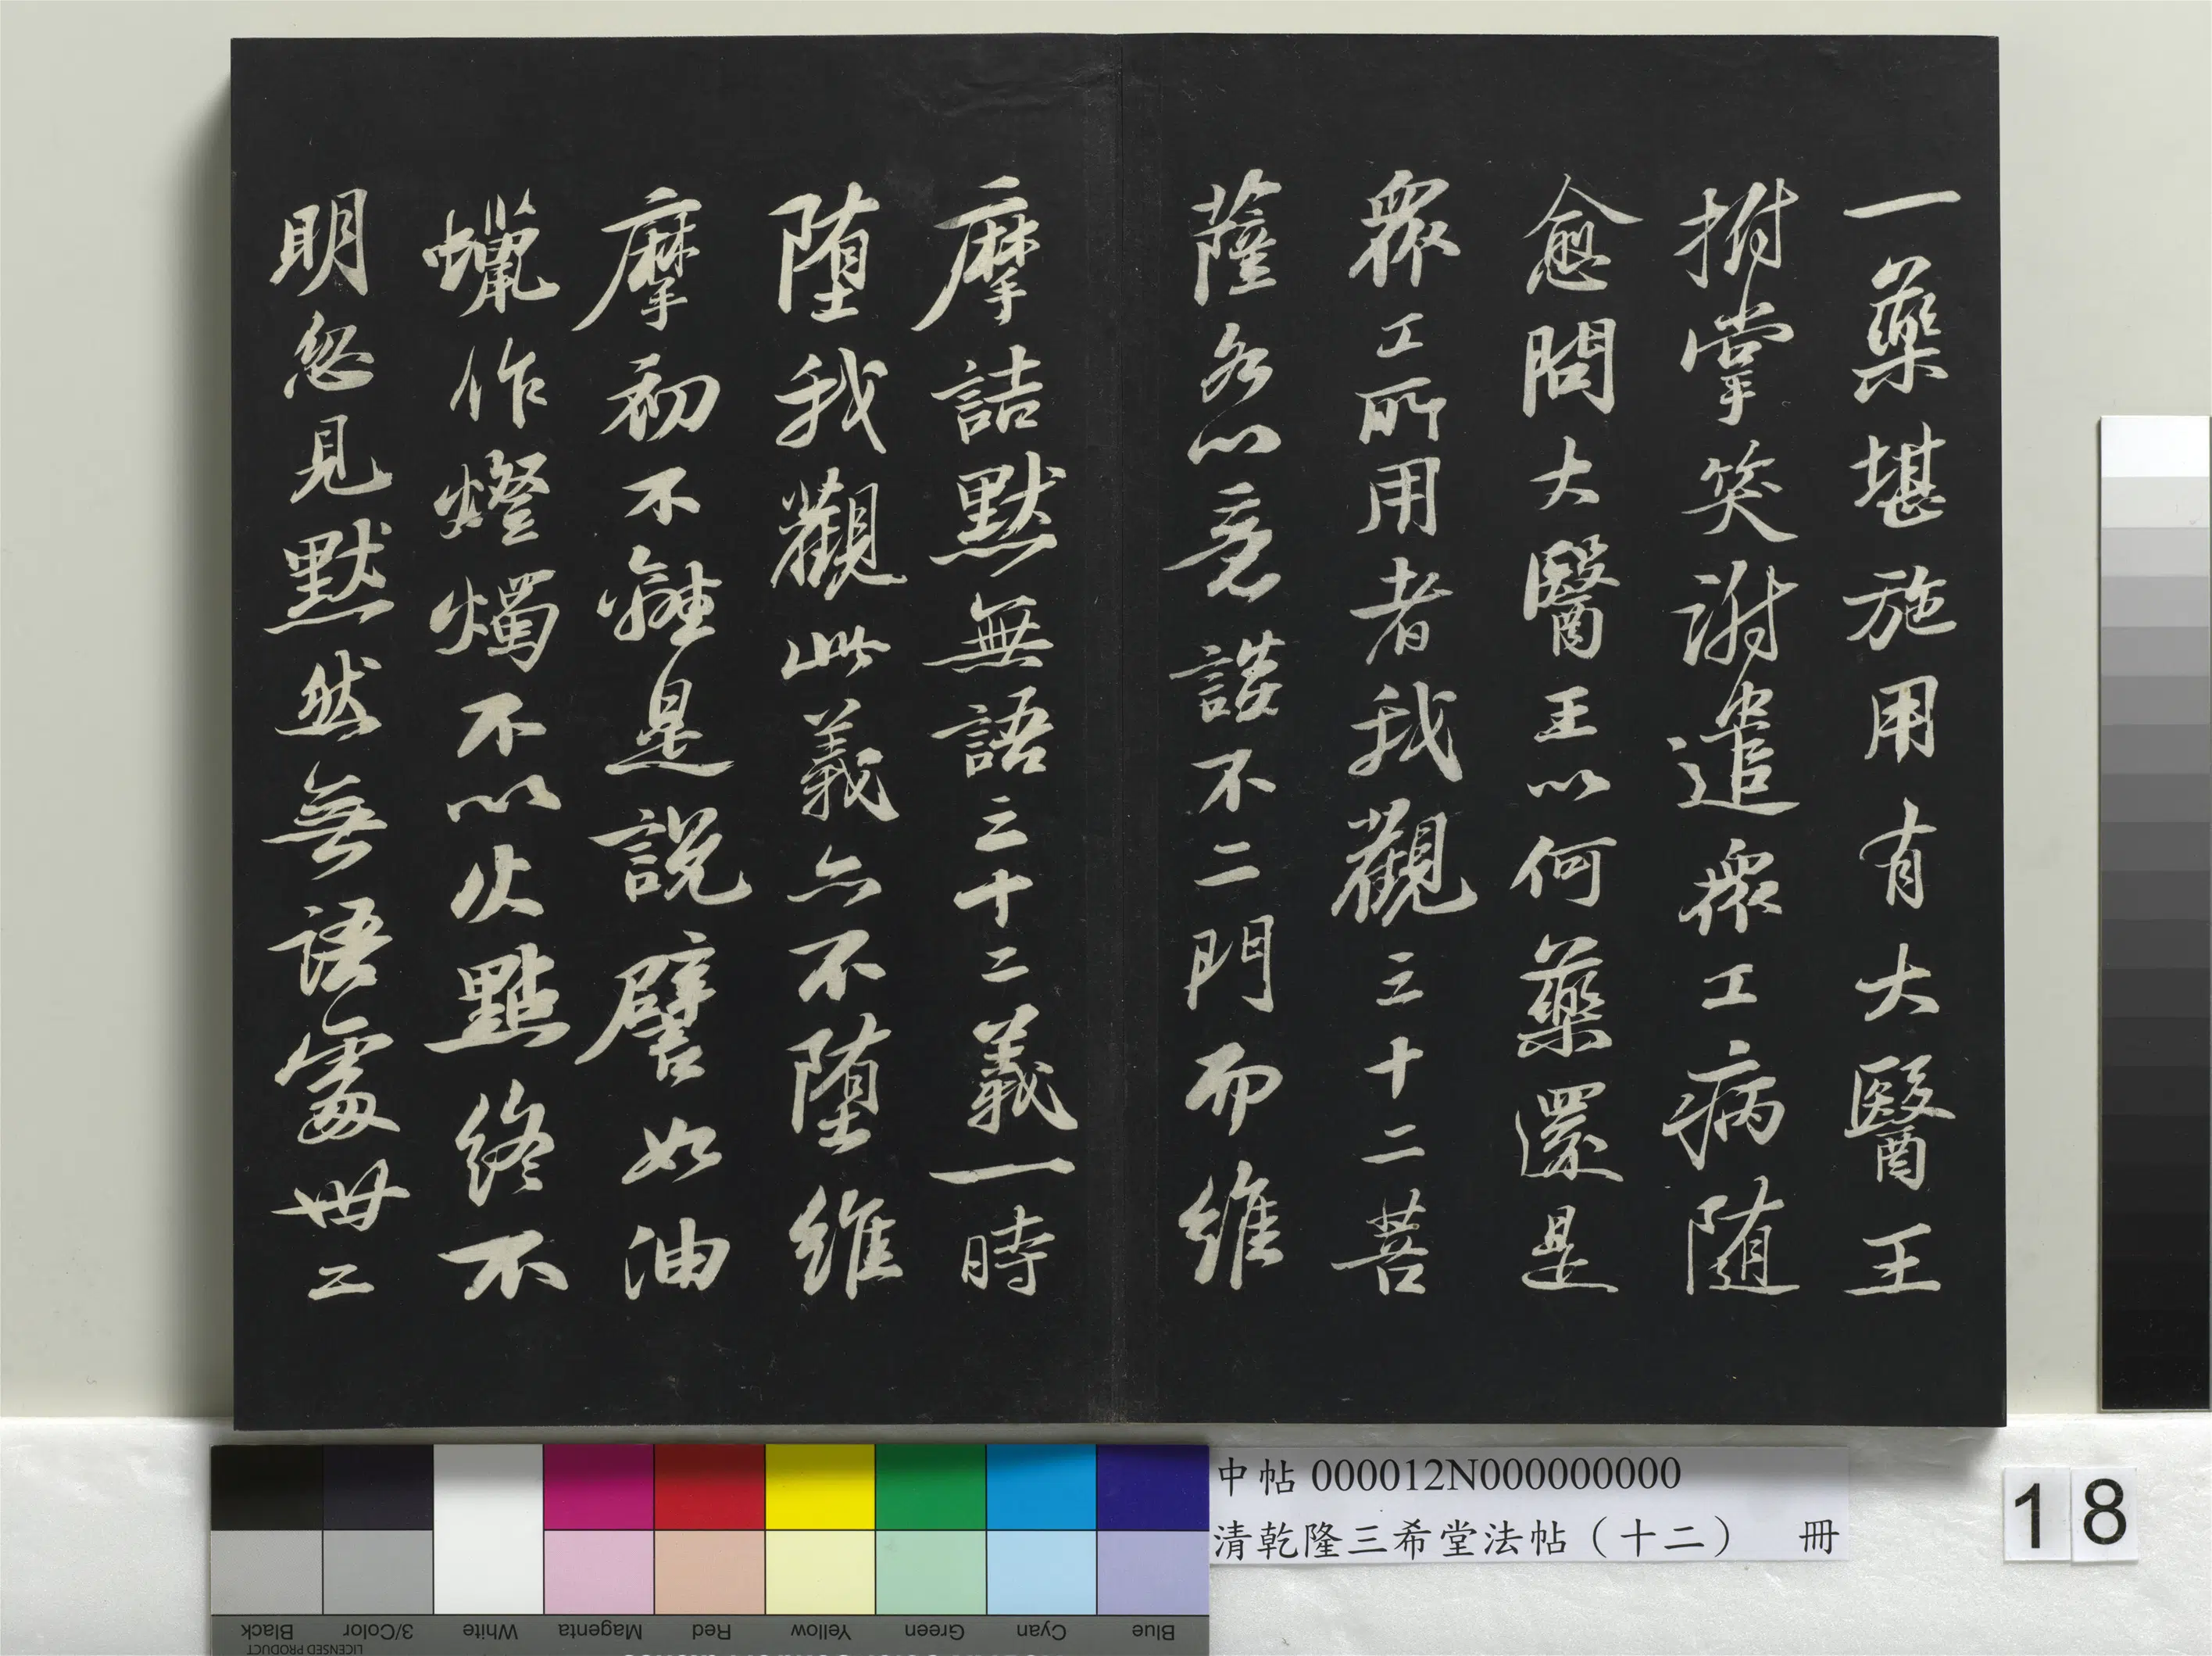 一藥堪施用有大醫王
拊掌笑謝遣衆工病隨
愈問大醫王以何藥還是
衆工所用者我觀三十二菩
薩各以意談不二門而維
摩詰默無語三十二義一時
墮我觀此義亦不墮維
摩初不離是說譬如油
蠟作燈燭不以火點終不
明忽見默然無語處卅二
中帖 000012N000000000
清乾隆三希堂法帖（十二） 冊
18
Black
3/Color
White
Magenta
Red
Yellow
Green
Cyan
Blue
LICENSED PRODUCT